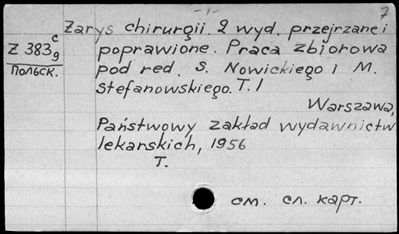 - 1 -
7
Zarys chirurgii. 2 wyd. przejrzane i
Z 383 c/9
Польск.
poprawione. Praca zbiorowa
pod red. S. Nowickiego i M.
Stefanowskiego. T. I
Warszawa,
Państwowy zakład wydawnictw
lekarskich, 1956
T.
см. сл. карт.